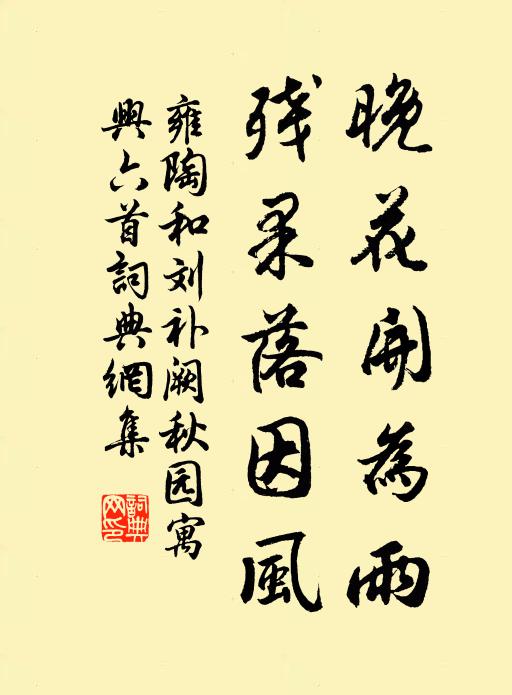 晚花開為雨
残果落因風
雍陶和刘补阙秋园寓
興六首詞典網集
詞典网印